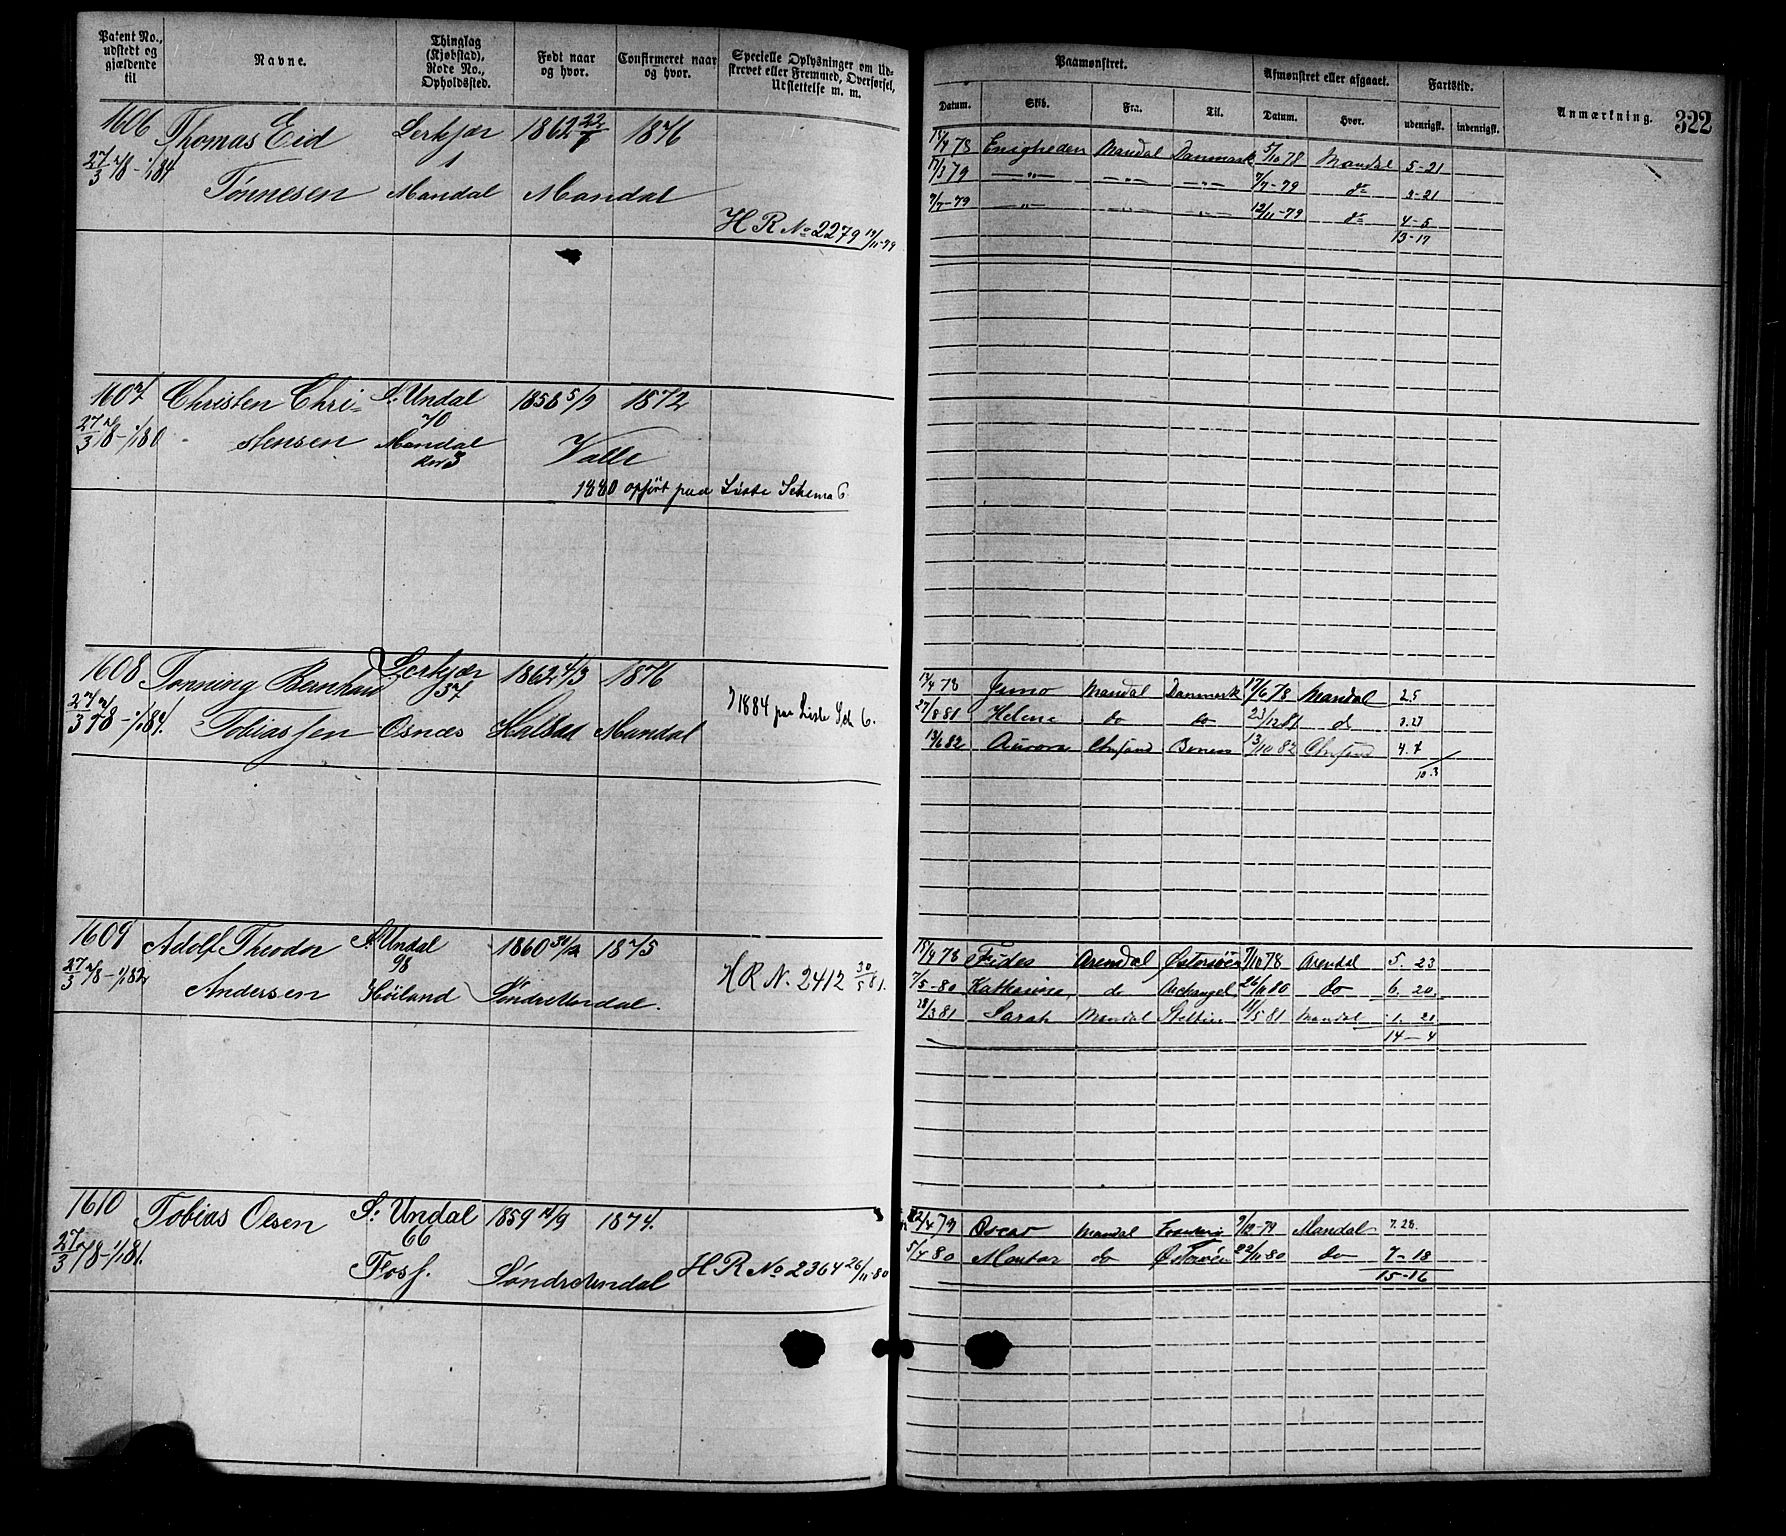 Patent No., udstedt og gjældende til
Navne.
Thinglag (Kjøbstad), Rode No., Opholdssted.
Født naar og hvor.
Confirmeret naar og hvor.
Specielle Oplysninger om Udskrevet eller Fremmed, Overførsel, Udslettelse m. m.
Paamønstret.
Datum.
Skib.
Fra.
Til.
Afmønstret eller afgaaet.
Datum.
Hvor.
Fartstid.
udenrigsk.
indenrigsk.
Anmærkning.
322
1606 Thomas Eid 1862 22/7 1876
27/3 78 - 1/1 84 Tønnesen Mandal Mandal
1
H R No 2279 12/11-79
15/4 78 Enigheden Mandal Danmark 5/10 78 Mandal 5-21
79 —"— —"— —"— 7/7-79 do 3-21
7/7-79 —"— —"— —"— 12/11-79 do 4-5
13-17
1607 Christen Chri- S. Undal 1858 5/9 1872
70
27/3 78 - 1/1 80 stensen Mandal Valle
3
1880 opført paa Liste Schema 6
1608 Tønning Bernhard 1862 4/3 1876
37
27/3 78 - 1/1 84. Tobiassen Osnæs Halsaa Mandal
1884 paa Liste Sch 6.
78 Juno Mandal Danmark 17/6 78 Mandal 2.5
27/8 81 Helene do do 23/12 81 do 3.27
13/6 82 Aurora Chrsand 13/10 82 Chrsand 4.7
10.3
1609 Adolf Theodor S. Undal 1860 1875
98
27/3 78 - 1/1 82 Andersen Høiland Søndre Undal.
H R N. 2412 30/5 81.
15/4 78 Fides Arendal Østersøen 78 Arendal 5. 23
7/5-80 Katharine do Archangel 26/11 80 do 6. 20.
28/3 81 Sarah Mandal Stettin 11/5 81 Mandal 1. 21
14-4
1610 Tobias Olsen S. Undal 1859 1874.
66
27/3 78 - 1/1 81. Foss. Søndre Undal
H R No 2364 26/11-80
12/4 79 Oscar Mandal 9/12-79 Mandal 7.28.
5/4 80 do Østersøen 22/11-80 do 7-18
15-16